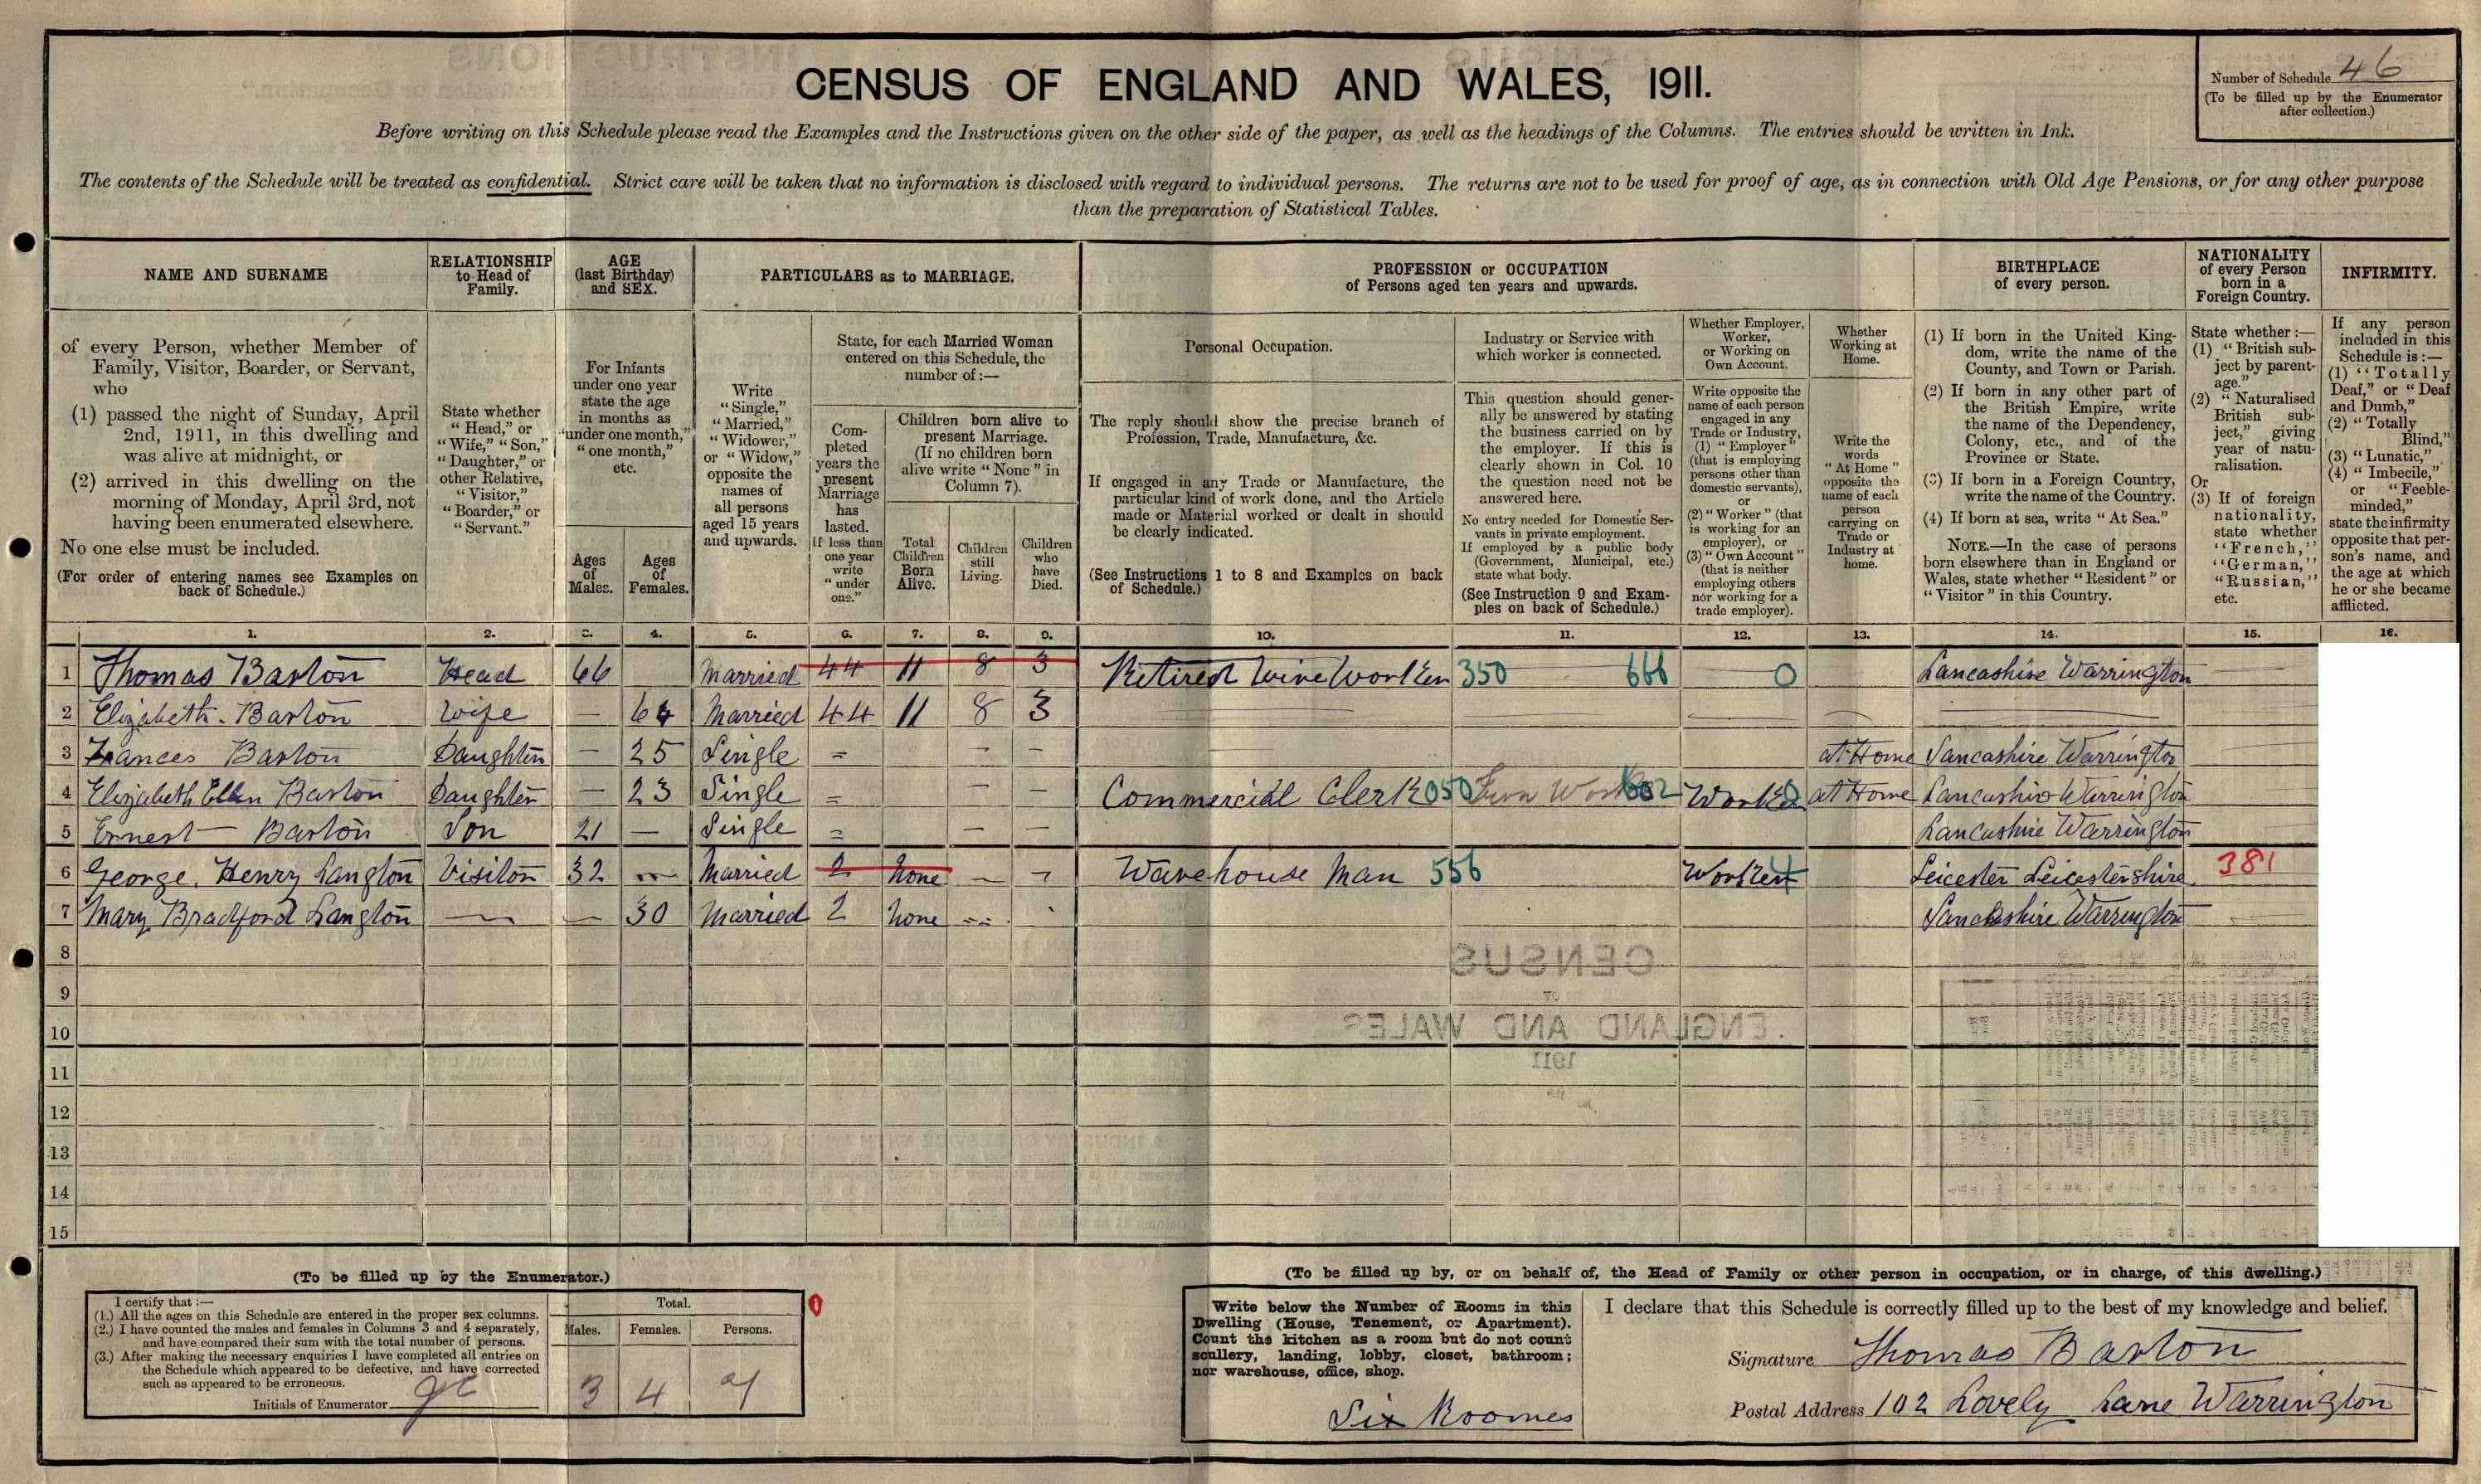 CENSUS OF ENGLAND AND WALES, 1911.
Number of Schedule 46
(To be filled up by the Enumerator
after collection.)
Before writing on this Schedule please read the Examples and the Instructions given on the other side of the paper, as well as the headings of the Columns. The entries should be written in Ink.
The contents of the Schedule will be treated as confidential. Strict care will be taken that no information is disclosed with regard to individual persons. The returns are not to be used for proof of age, as in connection with Old Age Pensions, or for any other purpose
than the preparation of Statistical Tables.
NAME AND SURNAME
of every Person, whether Member of
Family, Visitor, Boarder, or Servant,
who
(1) passed the night of Sunday, April
2nd, 1911, in this dwelling and
was alive at midnight, or
(2) arrived in this dwelling on the
morning of Monday, April 3rd, not
having been enumerated elsewhere.
No one else must be included.
(For order of entering names see Examples on
back of Schedule.)
RELATIONSHIP
to Head of
Family.
State whether
"Head," or
"Wife," "Son,"
"Daughter," or
other Relative,
"Visitor,"
"Boarder," or
"Servant."
AGE
(last Birthday)
and SEX.
For Infants
under one year
state the age
in months as
"under one month,"
"one month,"
etc.
Ages
of
Males.
Ages
of
Females.
PARTICULARS as to MARRIAGE.
Write
"Single,"
"Married,"
"Widower,"
or "Widow,"
opposite the
names of
all persons
aged 15 years
and upwards.
State, for each Married Woman
entered on this Schedule, the
number of:—
Com-
pleted
years the
present
Marriage
has
lasted.
If less than
one year
write
"under
one."
Children born alive to
present Marriage.
(If no children born
alive write "None" in
Column 7).
Total
Children
Born
Alive.
Children
still
Living.
Children
who
have
Died.
PROFESSION or OCCUPATION
of Persons aged ten years and upwards.
Personal Occupation.
The reply should show the precise branch of
Profession, Trade, Manufacture, &c.
If engaged in any Trade or Manufacture, the
particular kind of work done, and the Article
made or Material worked or dealt in should
be clearly indicated.
(See Instructions 1 to 8 and Examples on back
of Schedule.)
Industry or Service with
which worker is connected.
This question should gener-
ally be answered by stating
the business carried on by
the employer. If this is
clearly shown in Col. 10
the question need not be
answered here.
No entry needed for Domestic Ser-
vants in private employment.
If employed by a public body
(Government, Municipal, etc.)
state what body.
(See Instruction 9 and Exam-
ples on back of Schedule.)
Whether Employer,
Worker,
or Working on
Own Account.
Write opposite the
name of each person
engaged in any
Trade or Industry,
(1) "Employer"
(that is employing
persons other than
domestic servants),
or
(2) "Worker" (that
is working for an
employer), or
(3) "Own Account"
(that is neither
employing others
nor working for a
trade employer).
Whether
Working at
Home.
Write the
words
"At Home"
opposite the
name of each
person
carrying on
Trade or
Industry at
home.
BIRTHPLACE
of every person.
(1) If born in the United King-
dom, write the name of the
County, and Town or Parish.
(2) If born in any other part of
the British Empire, write
the name of the Dependency,
Colony, etc., and of the
Province or State.
(3) If born in a Foreign Country,
write the name of the Country.
(4) If born at sea, write "At Sea."
NOTE.—In the case of persons
born elsewhere than in England or
Wales, state whether "Resident" or
"Visitor" in this Country.
NATIONALITY
of every Person
born in a
Foreign Country.
State whether:—
(1) "British sub-
ject by parent-
age."
(2) "Naturalised
British sub-
ject," giving
year of natu-
ralisation.
Or
(3) If of foreign
nationality,
state whether
"French,"
"German,"
"Russian,"
etc.
INFIRMITY.
If any person
included in this
Schedule is:—
(1) "Totally
Deaf," or "Deaf
and Dumb,"
(2) "Totally
Blind,"
(3) "Lunatic,"
(4) "Imbecile,"
or "Feeble-
minded,"
state the infirmity
opposite that per-
son's name, and
the age at which
he or she became
afflicted.
1. 2. 3. 4. 5. 6. 7. 8. 9. 10. 11. 12. 13. 14. 15. 16.
1 Thomas Barton Head 66 Married 44 11 8 3 Retired Wire Worker 350 666 0 Lancashire Warrington
2 Elizabeth Barton Wife — 64 Married 44 11 8 3
3 Frances Barton Daughter — 25 Single — — at Home Lancashire Warrington
4 Elizabeth Ellen Barton Daughter — 23 Single — — Commercial Clerk 050 Worker at Home Lancashire Warrington
5 Ernest Barton Son 21 — Single — — Lancashire Warrington
6 George Henry Langton Visitor 32 — Married 2 None — — Warehouse Man 556 Worker Leicester Leicestershire 381
7 Mary Bradford Langton — — 30 Married 2 None Lancashire Warrington
8
9
10
11
12
13
14
15
CENSUS
ENGLAND AND WALES
1911
(To be filled up by the Enumerator.)
I certify that:—
(1.) All the ages on this Schedule are entered in the proper sex columns.
(2.) I have counted the males and females in Columns 3 and 4 separately,
and have compared their sum with the total number of persons.
(3.) After making the necessary enquiries I have completed all entries on
the Schedule which appeared to be defective, and have corrected
such as appeared to be erroneous.
Initials of Enumerator
Total.
Males. Females. Persons.
3 4 7
0
(To be filled up by, or on behalf of, the Head of Family or other person in occupation, or in charge, of this dwelling.)
Write below the Number of Rooms in this
Dwelling (House, Tenement, or Apartment).
Count the kitchen as a room but do not count
scullery, landing, lobby, closet, bathroom;
nor warehouse, office, shop.
Six Roomes
I declare that this Schedule is correctly filled up to the best of my knowledge and belief.
Signature Thomas Barton
Postal Address 102 Lovely Lane Warrington